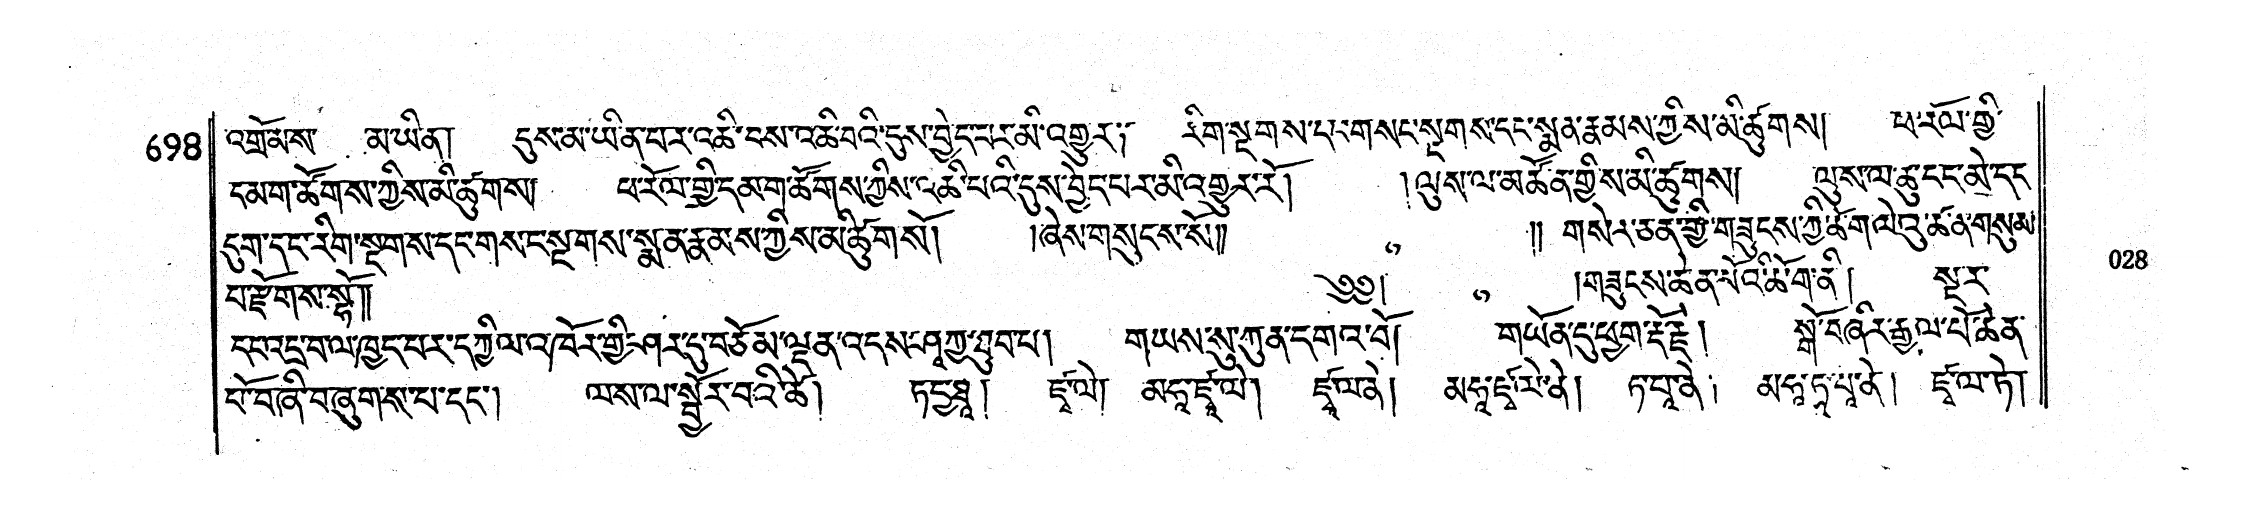 698
འགྲོམས་ མ་ཡིན། དུས་མ་ཡིན་པར་འཆི་བས་འཆི་བའི་དུས་བྱེད་པར་མི་འགྱུར། རིག་སྔགས་པར་གསང་སྔགས་དང་སྨན་རྣམས་ཀྱིས་མི་ཚུགས། ཕ་རོལ་གྱི་
དམག་ཚོགས་ཀྱིས་མི་ཚུགས། ཕ་རོལ་གྱི་དམག་ཚོགས་ཀྱིས་འཆི་བའི་དུས་བྱེད་པར་མི་འགྱུར་རོ། །ལུས་ལ་མཚོན་གྱིས་མི་ཚུགས། ལུས་ལ་ཆུ་དང་མེ་དང་
དུག་དང་རིག་སྔགས་དང་གསང་སྔགས་སྨན་རྣམས་ཀྱིས་མི་ཚུགསོ། །ཞེས་གསུངས་སོ།། །། གསེར་ཅན་གྱི་གཟུངས་ཀྱི་ཚིག་ལེའུ་ཚན་གསུམ་
པ་རྫོགས་སྷོ།། ༄༅། །གཟུངས་ཆེན་པོའི་ཆོ་ག་ནི། སྔར་
དང་འདྲ་བ་ལ་ཁྱད་པར་དཀྱིལ་འཁོར་གྱི་ཤར་དུ་བཅོམ་ལྡན་འདས་ཤཱཀྱ་ཐུབ་པ། གཡས་སུ་ཀུན་དགའ་བོ། གཡོན་དུ་ཕྱག་རྡོ་རྗེ། སྒོ་བཞིར་རྒྱལ་པོ་ཆེན་
པོ་བཞི་བཞུགས་པ་དང་། ལས་ལ་སྦྱོར་བའི་ཚེ། ཏདྱཐཱ། ཛྭ་ལེ། མཧཱ་ཛྭ་ལེ། ཛྭ་ལ་ནེ། མཧཱ་ཛྭ་ལེ་ནེ། ཏ་པཱ་ནེ། མཧཱ་ཏ་པཱ་ནེ། ཛྭ་ལ་ཏེ།
028